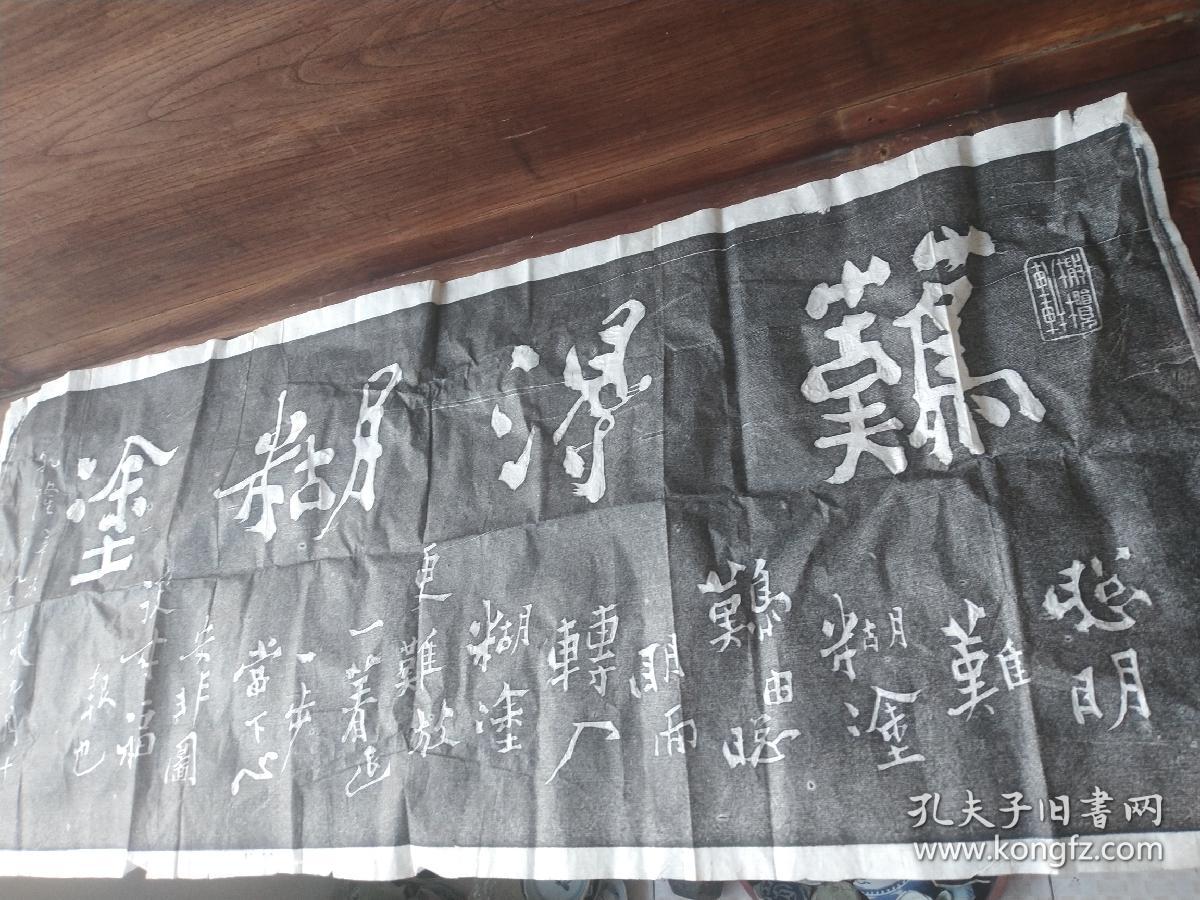 難得糊塗
聰明
難
糊塗
難由聰
明而
轉入
糊塗
更難放
一著退
一步
當下心
安非圖
後來福
報也
孔夫子旧書网
www.kongfz.com